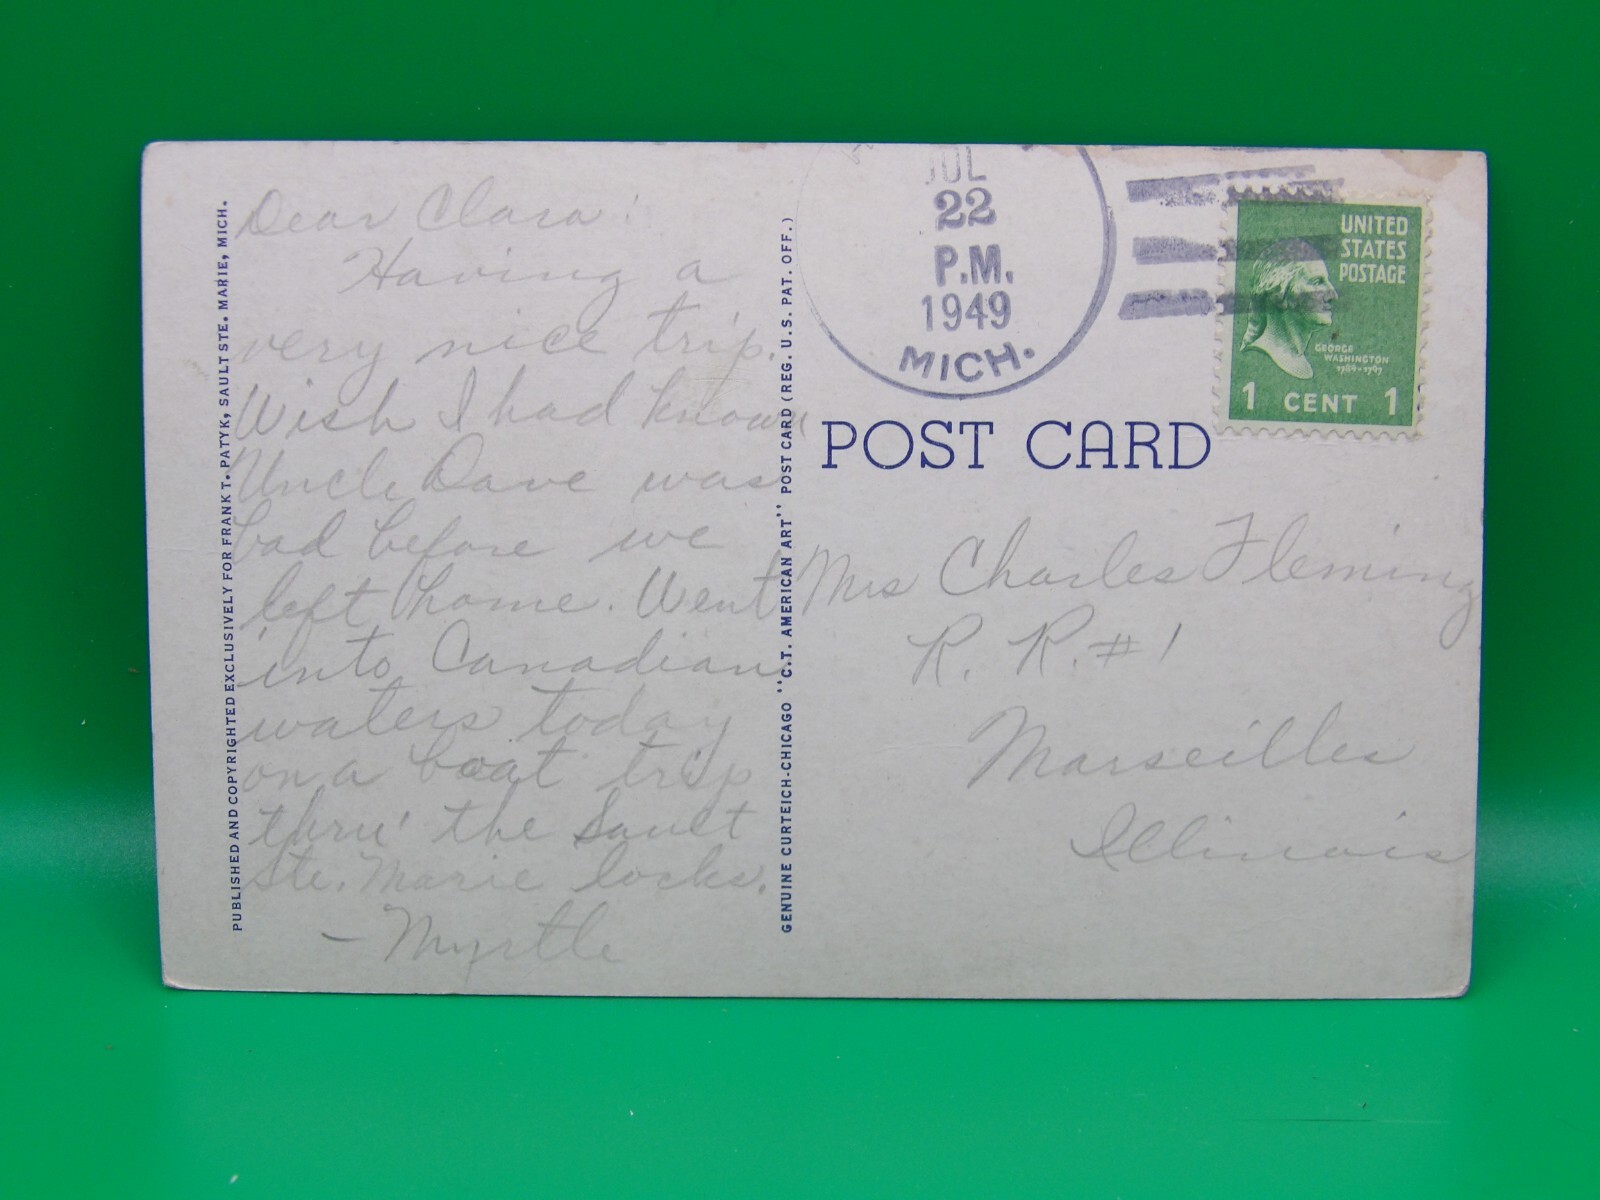 PUBLISHED AND COPYRIGHTED EXCLUSIVELY FOR FRANK T. PATYK, SAULT STE. MARIE, MICH.
Dear Clara:
Having a
very nice trip.
Wish I had known
Uncle Dave was
bad before we
left home. Went
into Canadian
waters today
on a boat trip
thru' the Sault
Ste. Marie locks.
- Myrtle
GENUINE CURTEICH-CHICAGO "C.T. AMERICAN ART" POST CARD (REG. U.S. PAT. OFF.)
JUL
22
P.M.
1949
MICH.
UNITED
STATES
POSTAGE
GEORGE
WASHINGTON
1789-1797
1 CENT 1
POST CARD
Mrs Charles Fleming
R. R. #1
Marseilles
Illinois